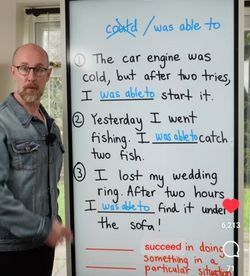 could / was able to
① The car engine was
cold, but after two tries,
I was able to start it.
② Yesterday I went
fishing. I was able to catch
two fish.
③ I lost my wedding
ring. After two hours
I was able to find it under
the sofa!
succeed in doing
something in a
particular situation
6,213